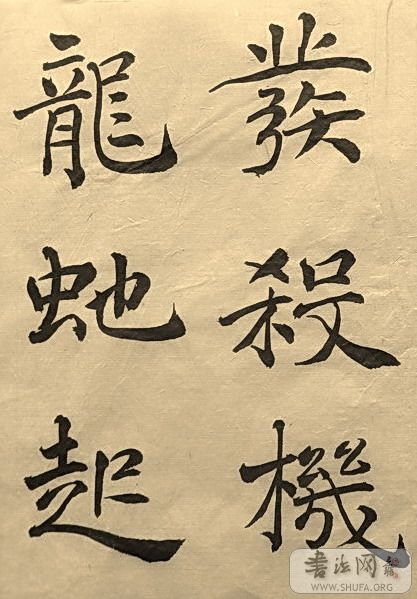 發殺機
龍虵起
书法网
WWW.SHUFA.ORG